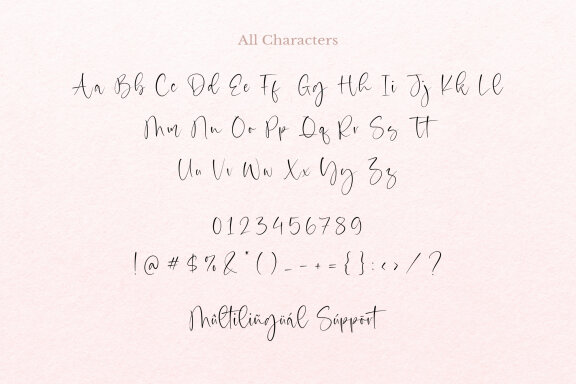 All Characters
Aa Bb Cc Dd Ee Ff Gg Hh Ii Jj Kk Ll
Mm Nn Oo Pp Qq Rr Ss Tt
Uu Vv Ww Xx Yy Zz
0123456789
!@#$%&*()_-+={}:<>/?
Múltiliñgüál Súppört